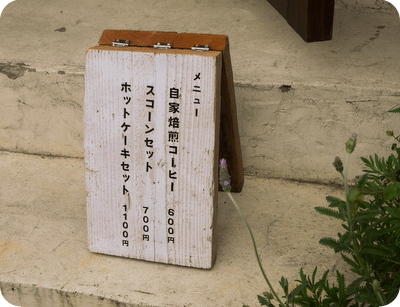 メニュー
自家焙煎コーヒー 600円
スコーンセット 700円
ホットケーキセット 1100円